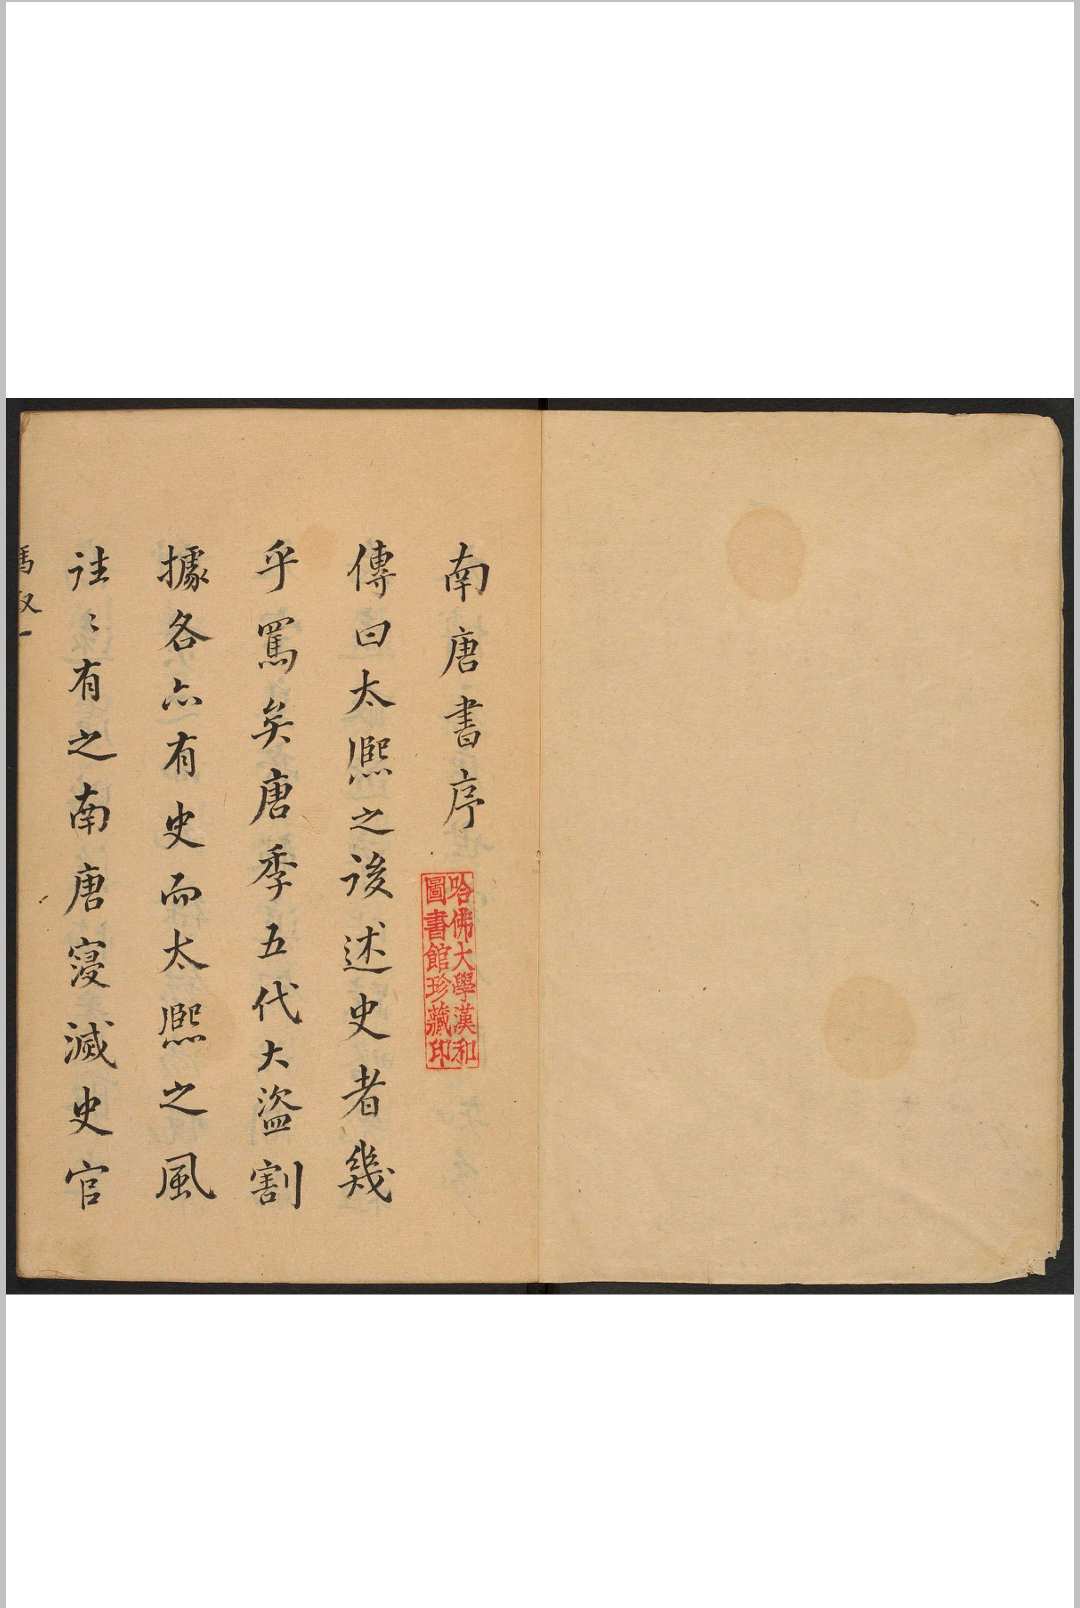 南唐書序
哈佛大學漢和
圖書館珍藏印
傳曰太熙之後述史者幾
乎罵矣唐季五代大盜割
據各亦有史而太熙之風
往〻有之南唐寖滅史官
馬叙一